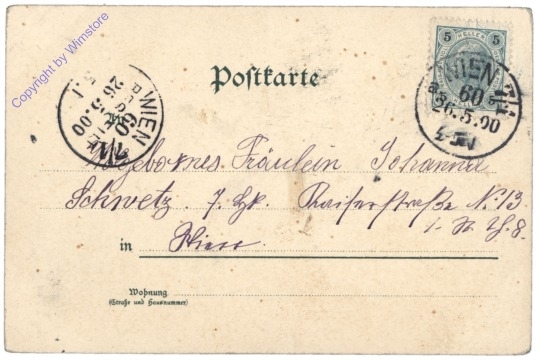 Copyright by Wimstore
5 HELLER 5
Postkarte
WIEN
60
26.5.00
WIEN
60
26.5.00
An
Fräulein Johanna
Schwetz. 7. Kaiserstraße No 13
in Wien
Wohnung
(Straße und Hausnummer)